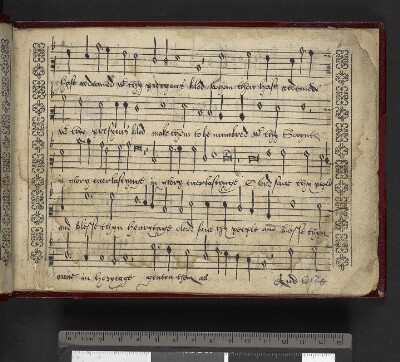 hast redemed wt thy pretyous blod whom thou hast redemed
wt thy pretyous blod make them to be numbred wt thy Saynts
in glory everlastynge in glory everlastynge O lord save thy people
and blesse thyn herytage O lord save thy people and blesse thyn
in herytage govern them